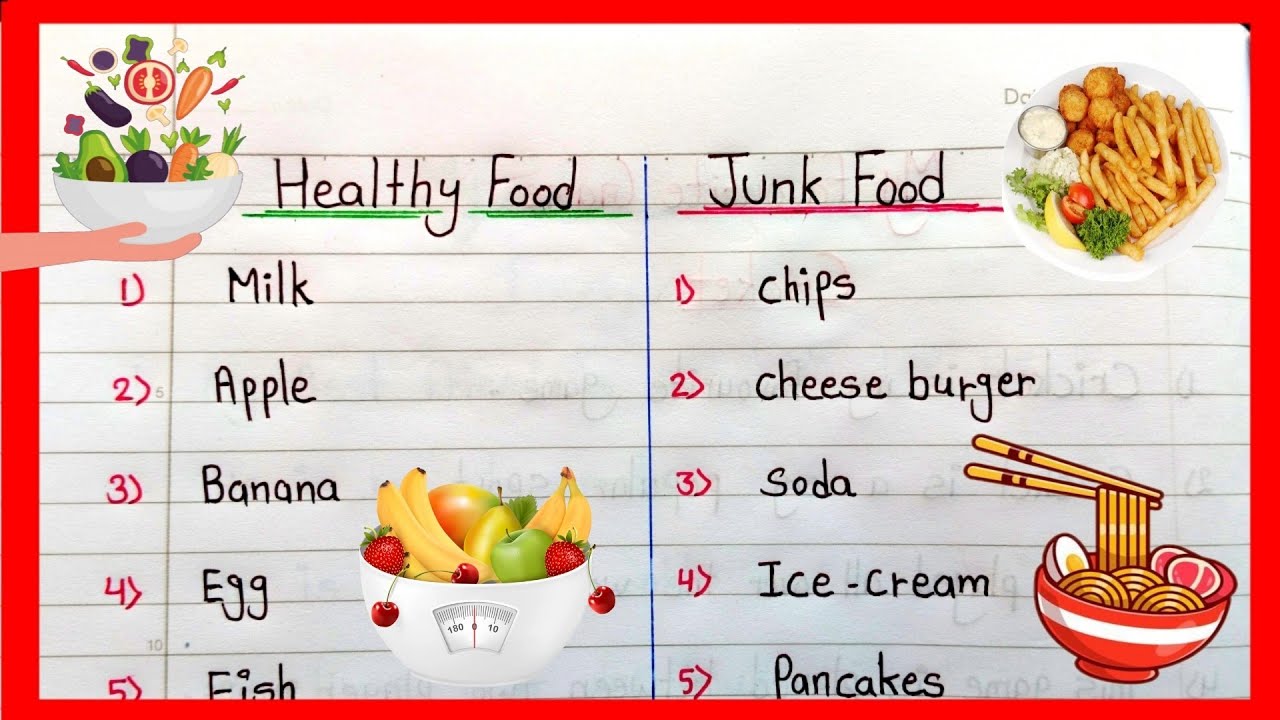 Healthy Food
1) Milk
2) Apple
3) Banana
4) Egg
5) Fish
Junk Food
1) chips
2) cheese burger
3) Soda
4) Ice-cream
5) Pancakes
5
10
180 0 10